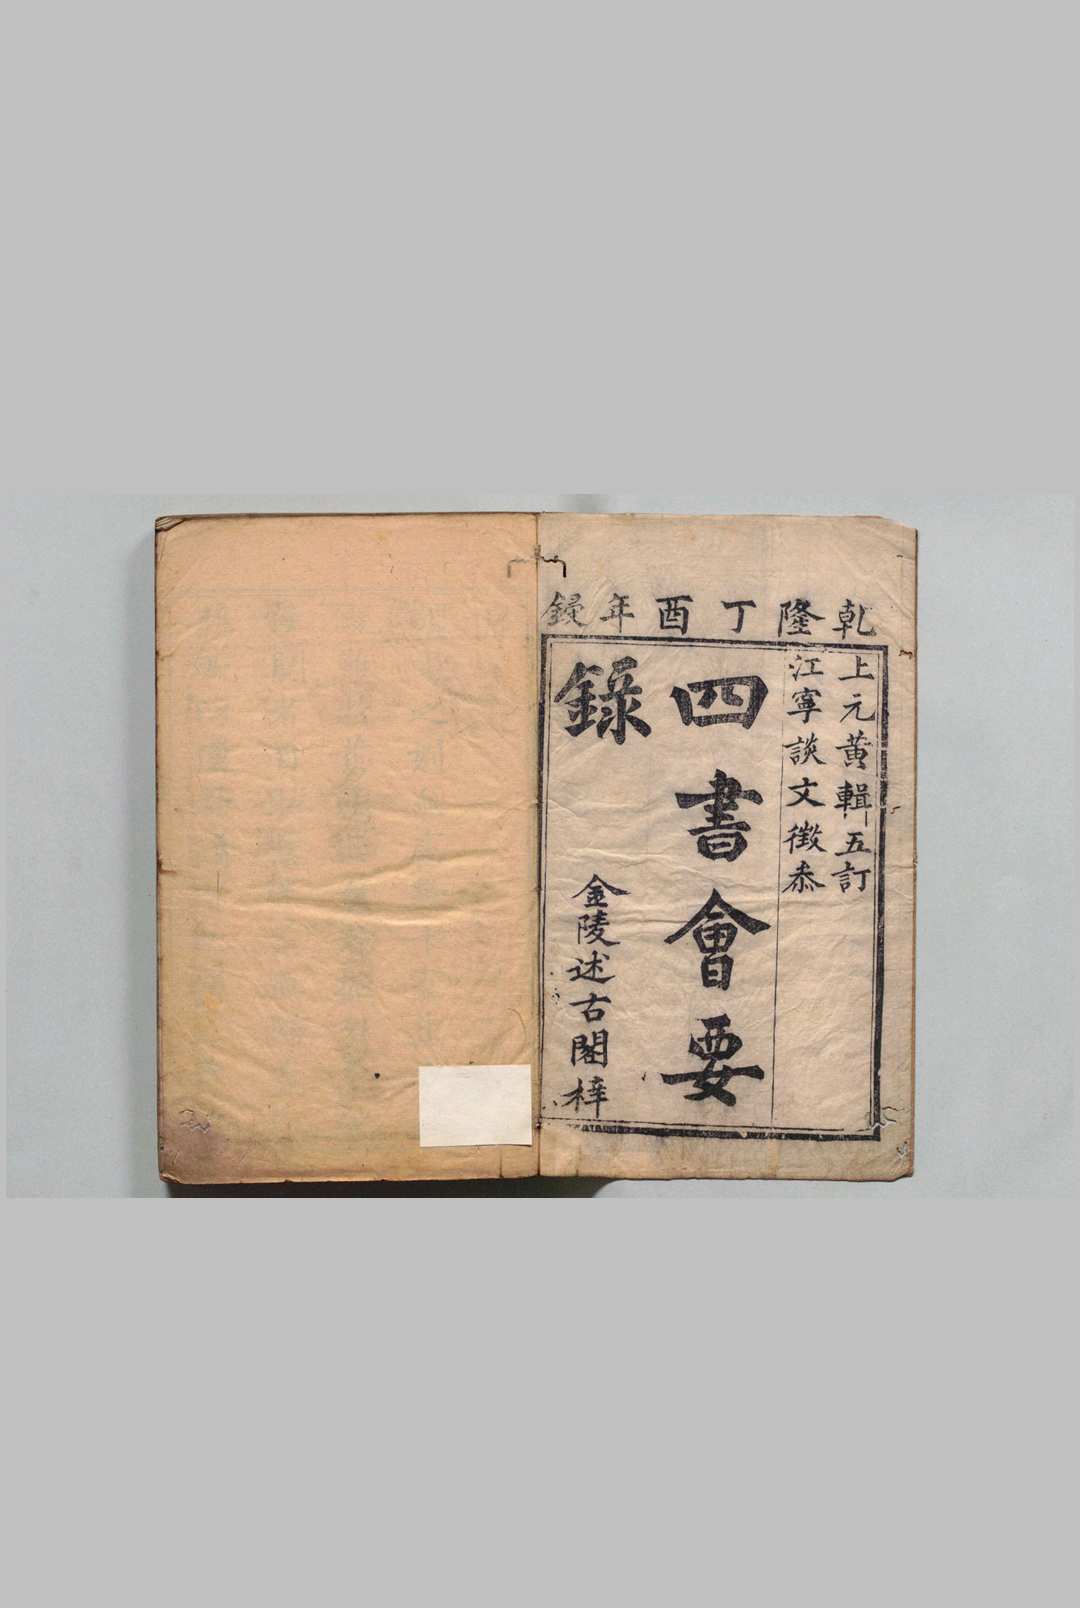 乾隆丁酉年鋟
上元黃輯五訂
江寧談文徵叅
四書會要
錄
金陵述古閣梓